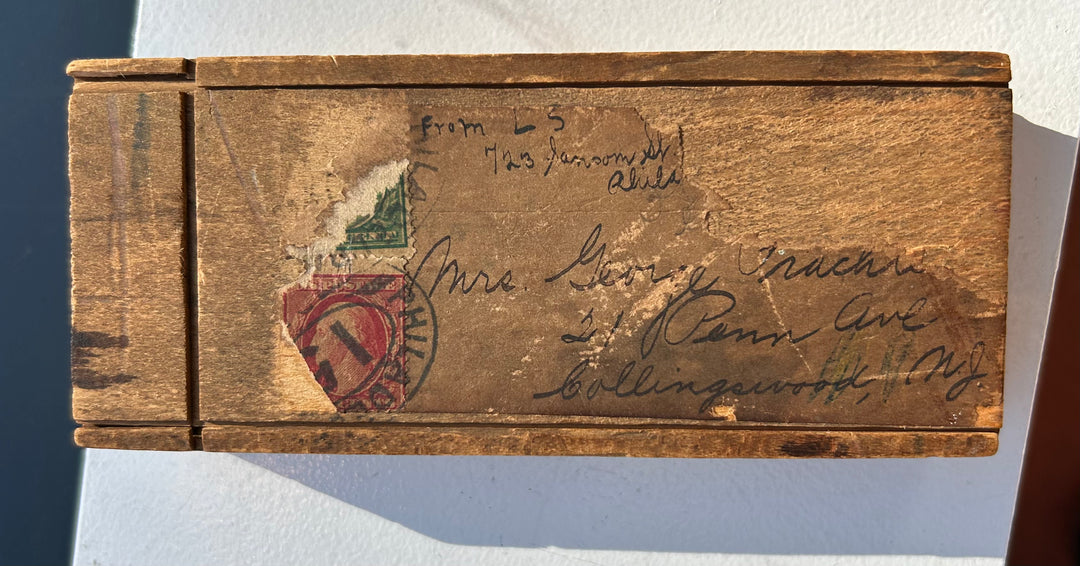 From L S
723 Sansom St
Phila
Mrs. George
21 Penn Ave
Collingswood, NJ